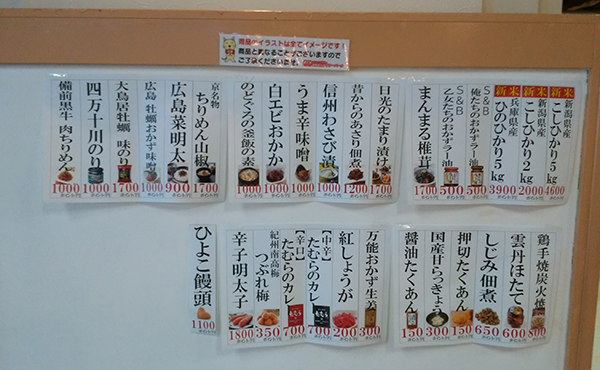 商品のイラストは全てイメージです！
商品と異なることがございますので
ご了承くださいませ。
新米 新潟県産 こしひかり5kg 4600
新米 新潟県産 こしひかり2kg 2000
新米 兵庫県産 ひのひかり5kg 3900
S&B 俺たちのおかずラー油 500
S&B 乙女たちのおかずラー油 500
まんまる椎茸 1700
日光のたまり漬け 1700
昔からのあさり佃煮 1200
信州わさび漬 1000
うま辛味噌 1000
白エビおかか 1000
のどぐろの釜飯の素 1000
京名物 ちりめん山椒 1700
広島菜明太 900
広島 牡蠣 おかず味噌 1000
大鳥居牡蠣 味のり 1700
四万十川のり 1000
備前黒牛 肉ちりめん 1000
鶏手焼炭火焼 800
雲丹ほたて 600
しじみ佃煮 650
押切たくあん 150
国産甘らっきょう 300
醤油たくあん 150
万能おかず生姜 300
紅しょうが 200
【中辛】たむらのカレー 700
【辛口】たむらのカレー 700
紀州南高梅 つぶれ梅 350
辛子明太子 1800
ひよこ饅頭 1100